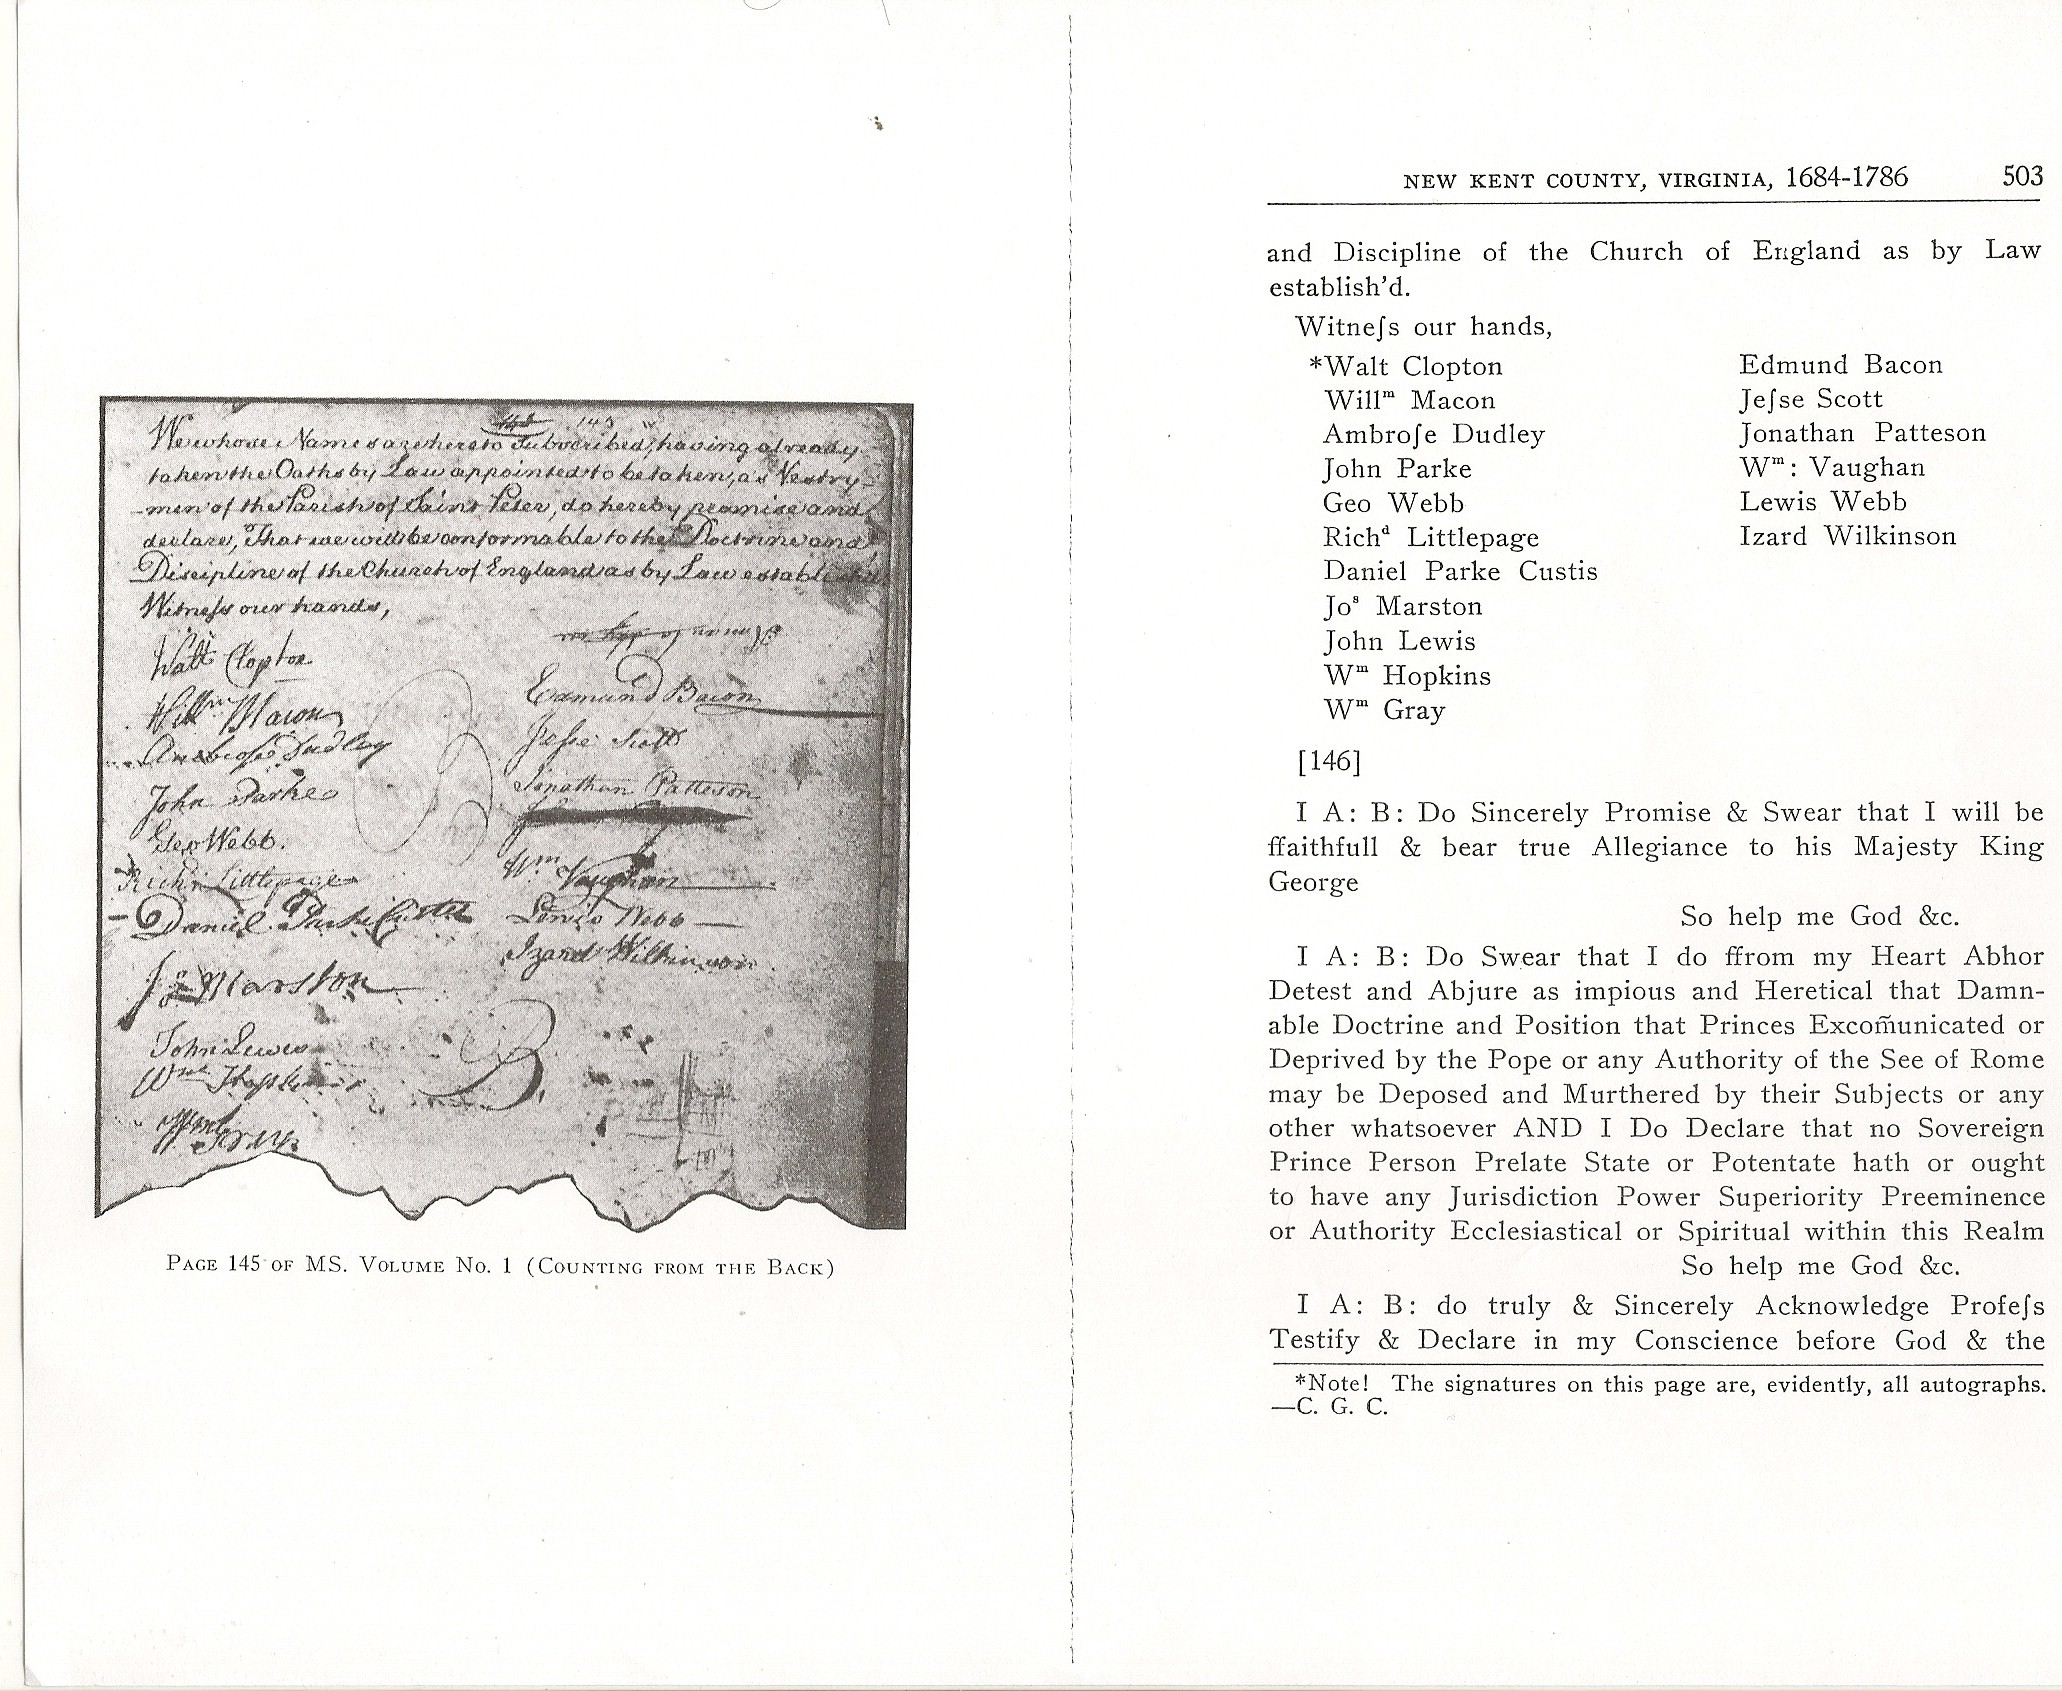 145
We whose Names are hereto Subscribed, having already
taken the Oaths by Law appointed to be taken, as Vestry-
-men of the Parish of Saint Peter, do hereby promise and
declare, That we will be conformable to the Doctrine and
Discipline of the Church of England as by Law establish'd
Witneſs our hands,
Walt Clopton
Willm Macon
Ambroſe Dudley
John Parke
Geo Webb.
Richd Littlepage
Daniel Parke Custis
Jos Marston
John Lewis
Wm Hopkins
Wm Gray
Edmund Bacon
Jeſse Scott
Jonathan Patteson
Wm Vaughan
Lewis Webb
Izard Wilkinson
PAGE 145 OF MS. VOLUME NO. 1 (COUNTING FROM THE BACK)
NEW KENT COUNTY, VIRGINIA, 1684-1786 503
and Discipline of the Church of England as by Law
establish'd.
Witneſs our hands,
*Walt Clopton Edmund Bacon
Willᵐ Macon Jeſse Scott
Ambroſe Dudley Jonathan Patteson
John Parke Wᵐ: Vaughan
Geo Webb Lewis Webb
Richᵈ Littlepage Izard Wilkinson
Daniel Parke Custis
Joˢ Marston
John Lewis
Wᵐ Hopkins
Wᵐ Gray
[146]
I A: B: Do Sincerely Promise & Swear that I will be
ffaithfull & bear true Allegiance to his Majesty King
George
So help me God &c.
I A: B: Do Swear that I do ffrom my Heart Abhor
Detest and Abjure as impious and Heretical that Damn-
able Doctrine and Position that Princes Excom̃unicated or
Deprived by the Pope or any Authority of the See of Rome
may be Deposed and Murthered by their Subjects or any
other whatsoever AND I Do Declare that no Sovereign
Prince Person Prelate State or Potentate hath or ought
to have any Jurisdiction Power Superiority Preeminence
or Authority Ecclesiastical or Spiritual within this Realm
So help me God &c.
I A: B: do truly & Sincerely Acknowledge Profeſs
Testify & Declare in my Conscience before God & the
*Note! The signatures on this page are, evidently, all autographs.
—C. G. C.